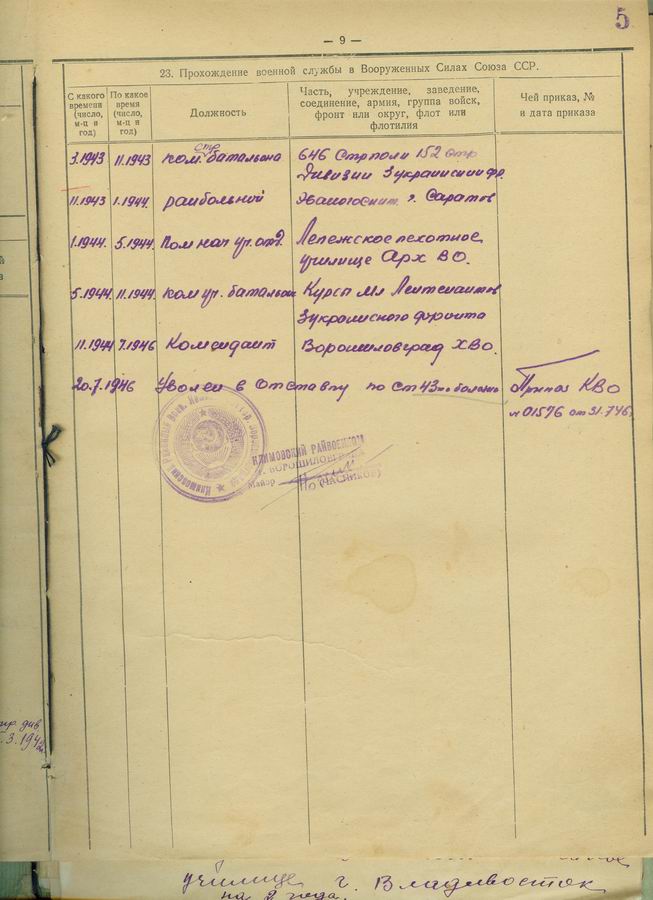 5
— 9 —
23. Прохождение военной службы в Вооруженных Силах Союза ССР.
С какого времени (число, м-ц и год)
По какое время (число, м-ц и год)
Должность
Часть, учреждение, заведение, соединение, армия, группа войск, фронт или округ, флот или флотилия
Чей приказ, № и дата приказа
3.1943 11.1943 ком. стр. батальона 646 Стр полк 152 стр
Дивизии 3 украинский фр.
11.1943 1.1944. ранбольной г. Саратов
1.1944. 5.1944. Пом нач уч. отд. пехотное
училище Арх ВО.
5.1944. 11.1944. ком уч. батальон Курсы Мл Лейтенантов
3 украинского фронта
11.1944 7.1946 Комендант Ворошиловград ХВО.
20.7.1946 Уволен в отставку по ст 43 по болезни Приказ КВО
№ 01576 от 31.7.46.
КЛИМОВСКИЙ РАЙВОЕНКОМ
г. ВОРОШИЛОВГРАДА
Майор
стр. див
3.194
училище г. Владивосток
на 2 года.